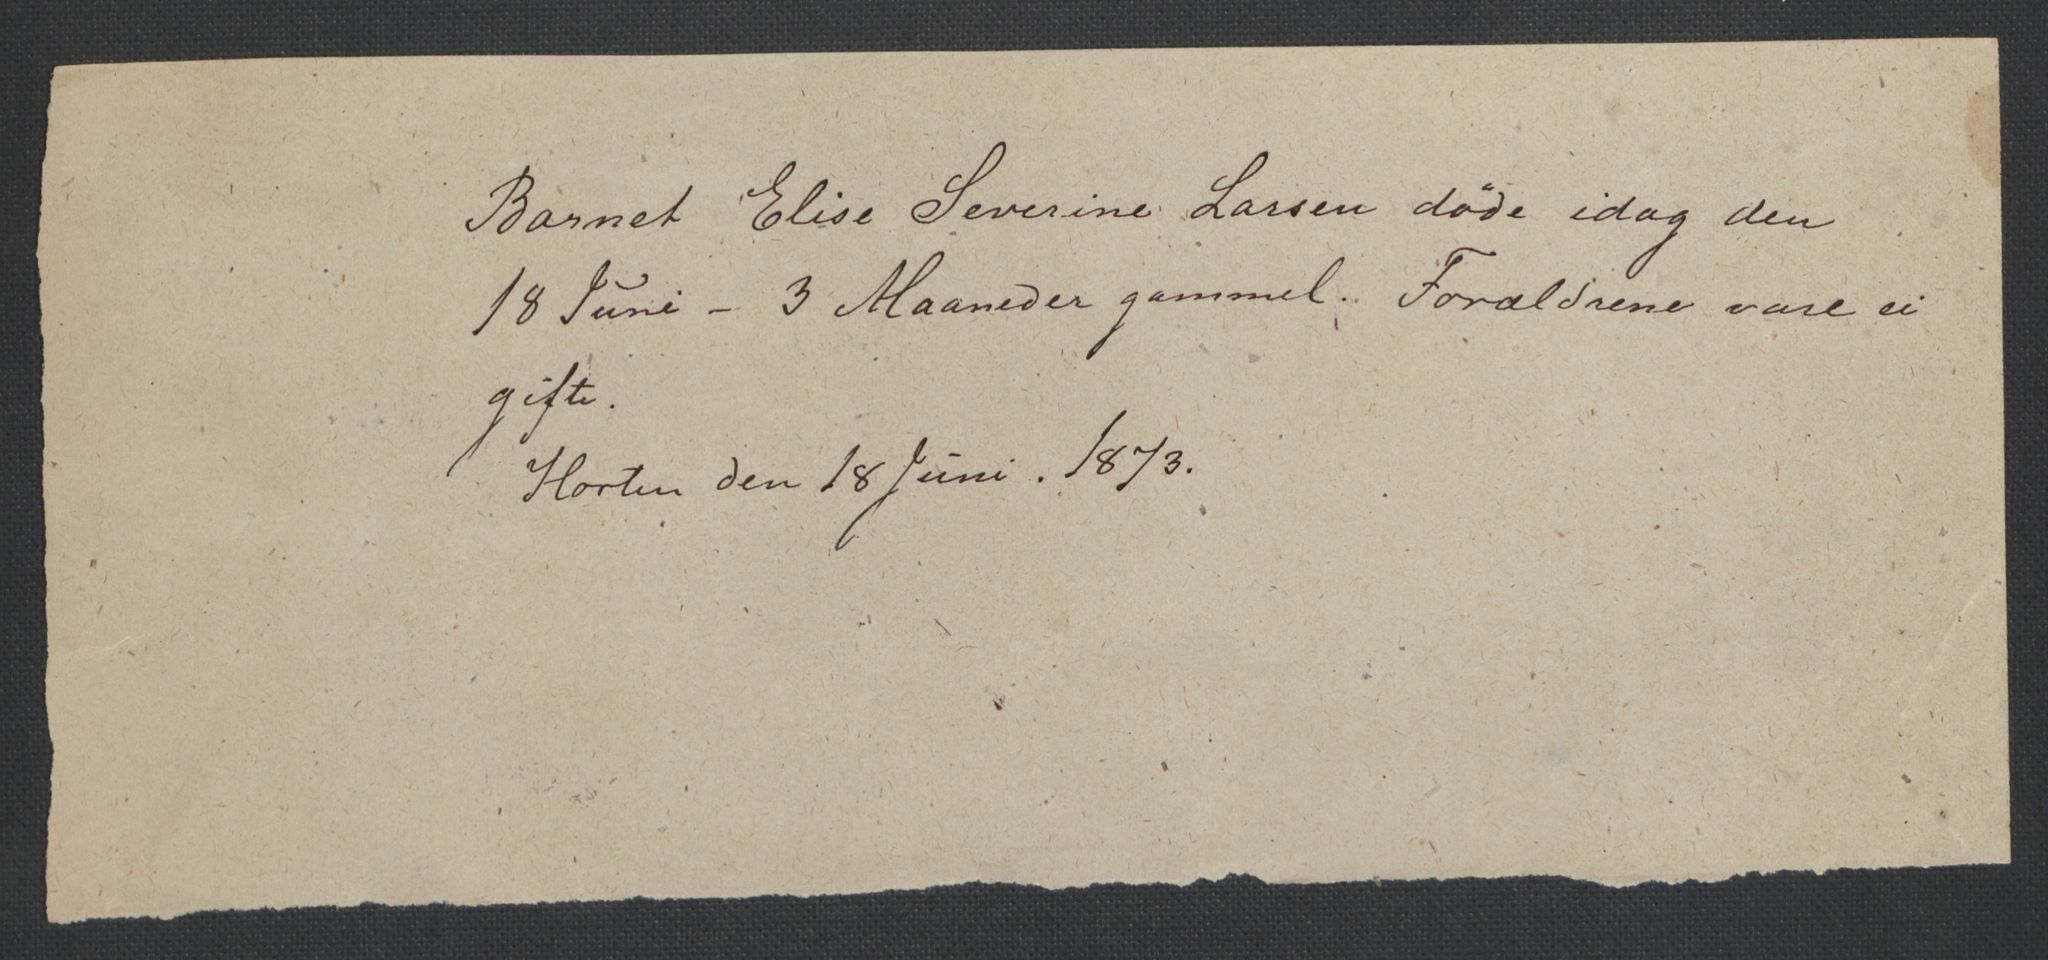 Barnet Elise Severine Larsen döde idag den
18 Juni - 3 Maaneder gammel. Forældrene vare ei
gifte.
Horten den 18 Juni. 1873.